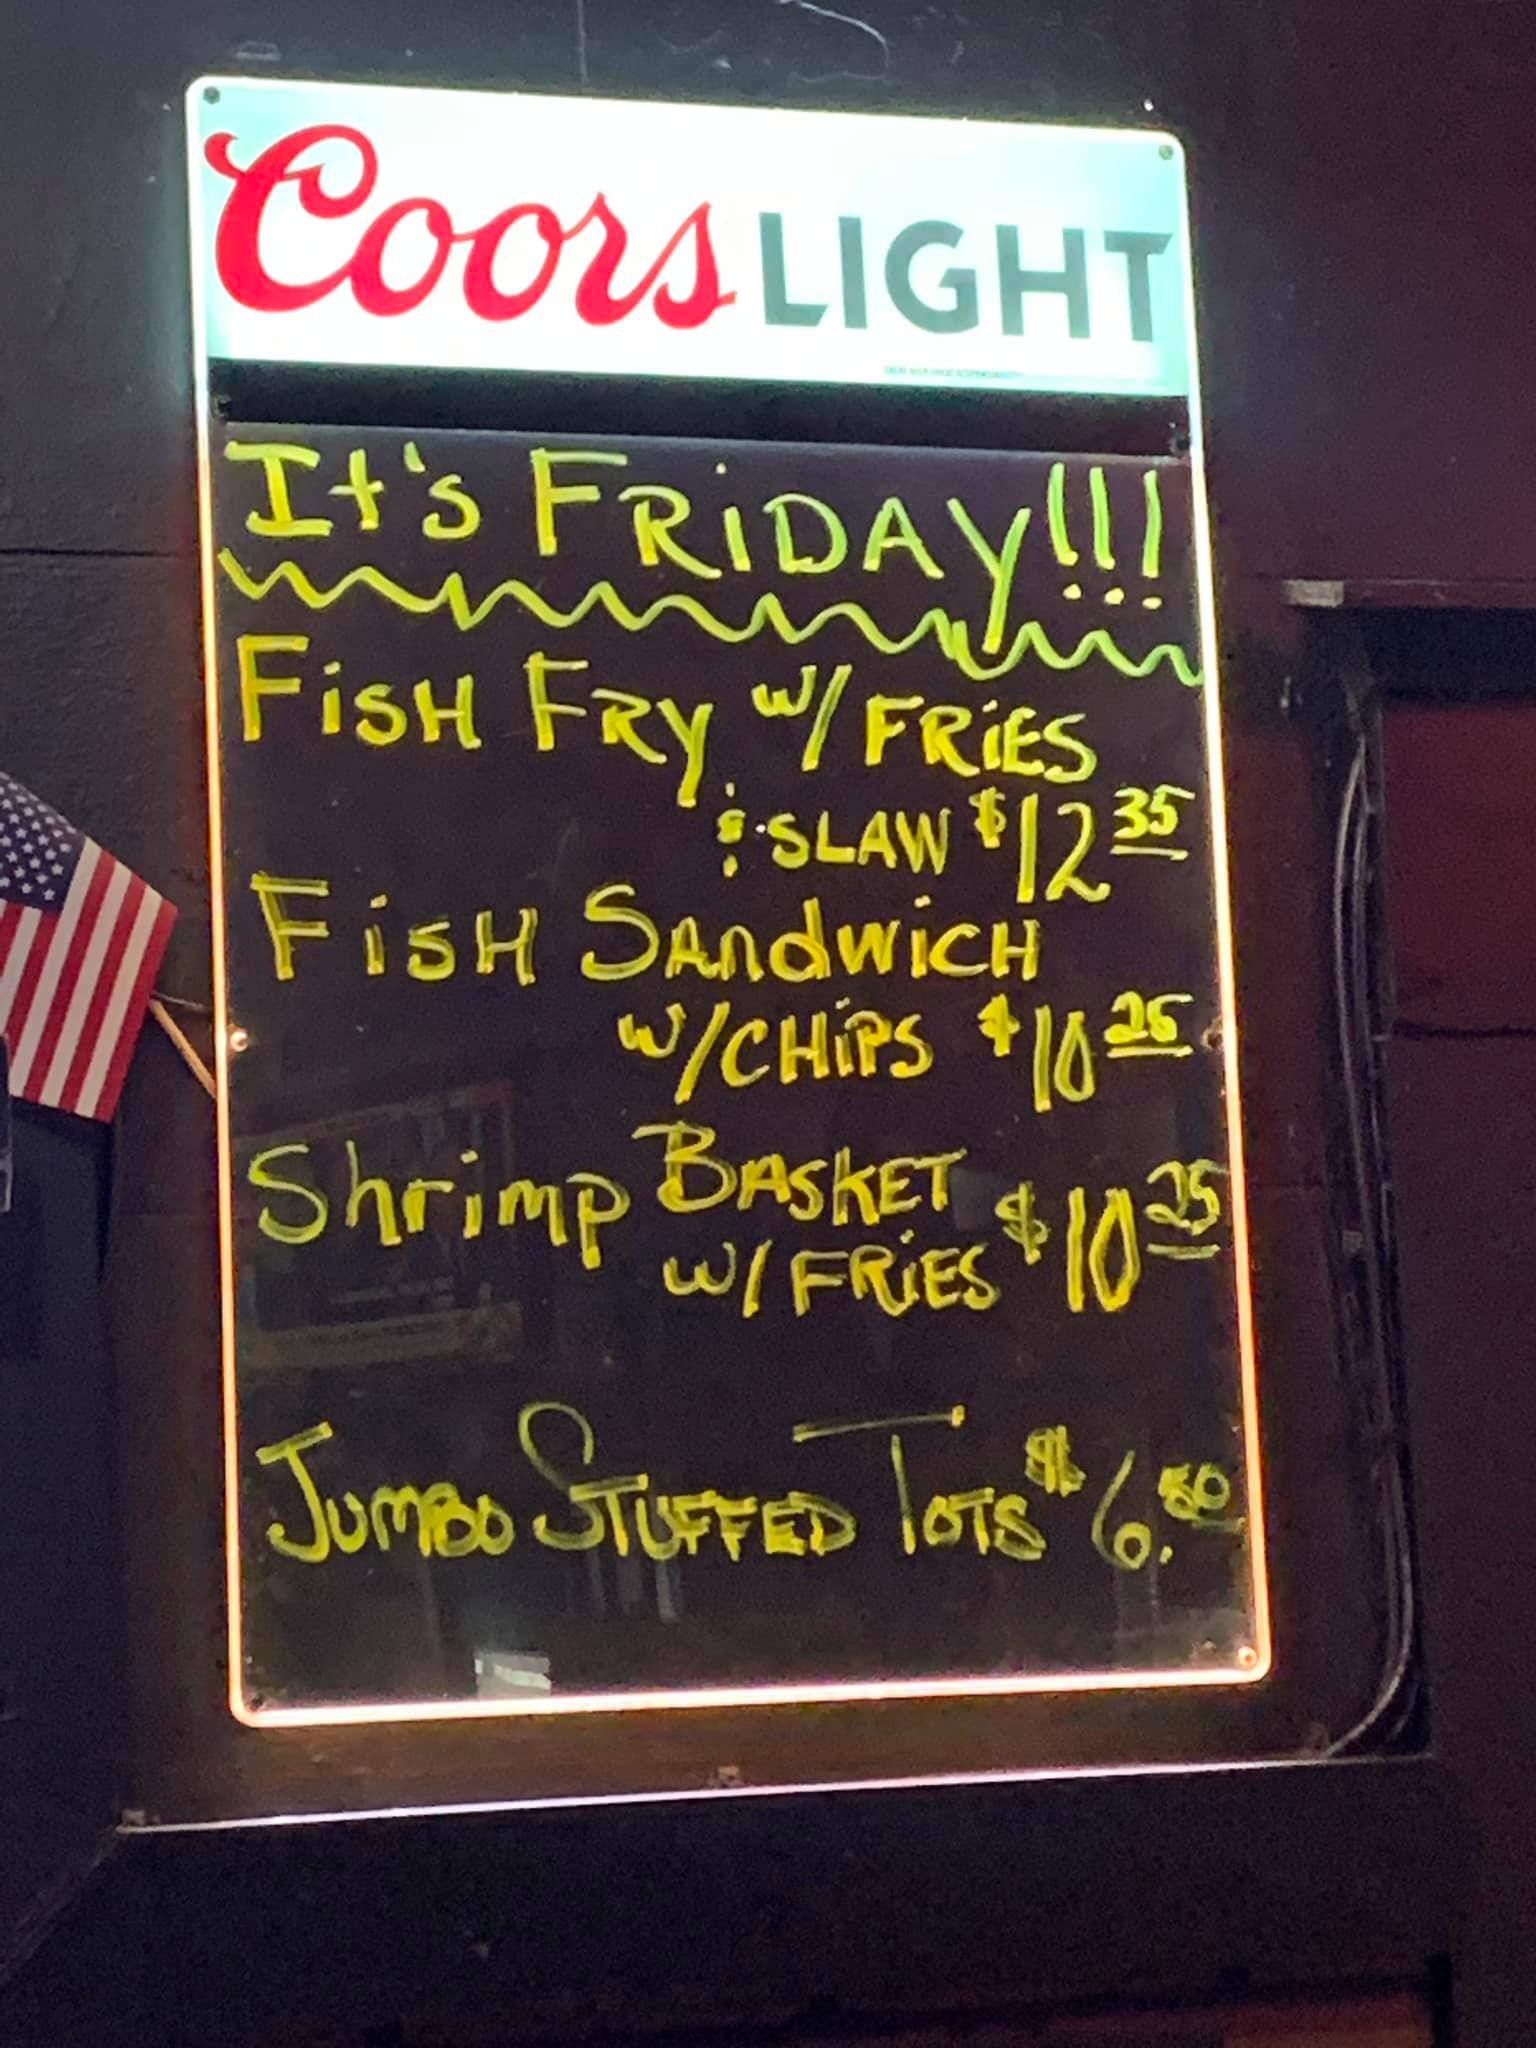 Coors LIGHT
It's FRiDAY!!!
FisH FRy w/ FRiES
& SLAW $12 35
FisH SAndwicH
w/CHiPS $10 25
Shrimp BASKET $10 25
w/ FRiES
JUMBO STUFFED TOTS $6.50